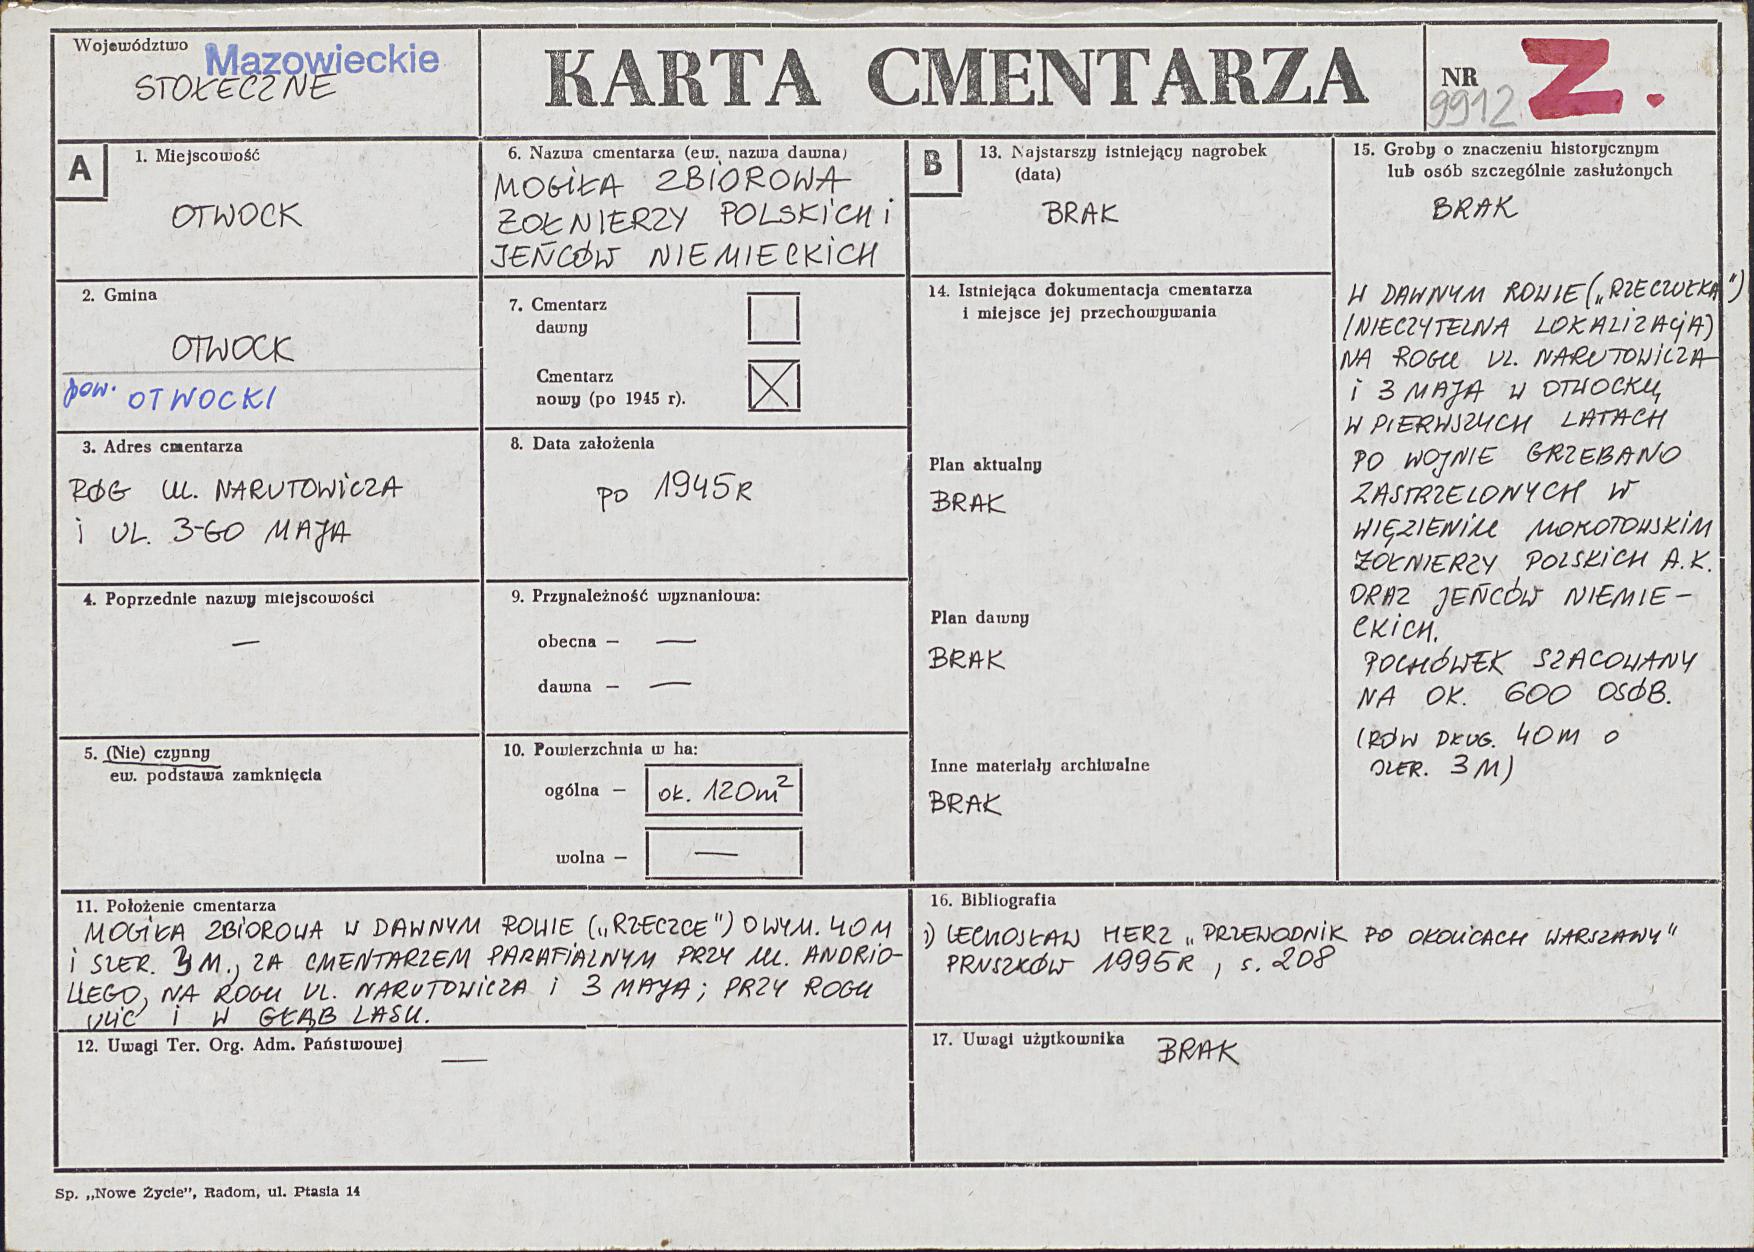 Województwo Mazowieckie
STOŁECZNE
KARTA CMENTARZA
NR
9912
Z.
A
1. Miejscowość
OTWOCK
2. Gmina
OTWOCK
pow. OTWOCKI
3. Adres cmentarza
RÓG UL. NARUTOWICZA
i UL. 3-GO MAJA
4. Poprzednie nazwy miejscowości
—
5. (Nie) czynny
ew. podstawa zamknięcia
6. Nazwa cmentarza (ew. nazwa dawna)
MOGIŁA ZBIOROWA
ŻOŁNIERZY POLSKICH i
JEŃCÓW NIEMIECKICH
7. Cmentarz
dawny
Cmentarz
nowy (po 1945 r).
8. Data założenia
PO 1945R
9. Przynależność wyznaniowa:
obecna — —
dawna — —
10. Powierzchnia w ha:
ogólna — ok. 120m²
wolna — —
B
13. Najstarszy istniejący nagrobek
(data)
BRAK
14. Istniejąca dokumentacja cmentarza
i miejsce jej przechowywania
Plan aktualny
BRAK
Plan dawny
BRAK
Inne materiały archiwalne
BRAK
15. Groby o znaczeniu historycznym
lub osób szczególnie zasłużonych
BRAK
W DAWNYM ROWIE („RZECZUŁKA")
(NIECZYTELNA LOKALIZACJA)
NA ROGU UL. NARUTOWICZA
i 3 MAJA W OTWOCKU,
W PIERWSZYCH LATACH
PO WOJNIE GRZEBANO
ZASTRZELONYCH W
WIĘZIENIU MOKOTOWSKIM
ŻOŁNIERZY POLSKICH A.K.
ORAZ JEŃCÓW NIEMIE-
CKICH.
POCHÓWEK SZACOWANY
NA OK. 600 OSÓB.
(RÓW DŁUG. 40M O
SZER. 3M)
11. Położenie cmentarza
MOGIŁA ZBIOROWA W DAWNYM ROWIE („RZECZCE") O WYM. 40M
i SZER. 3M., ZA CMENTARZEM PARAFIALNYM PRZY UL. ANDRIO-
LLEGO, NA ROGU UL. NARUTOWICZA i 3 MAJA; PRZY ROGU
ULIC i W GŁĄB LASU.
12. Uwagi Ter. Org. Adm. Państwowej
—
16. Bibliografia
1) LECHOSŁAW HERZ „PRZEWODNIK PO OKOLICACH WARSZAWY"
PRUSZKÓW 1995R, s. 208
17. Uwagi użytkownika BRAK
Sp. „Nowe Życie", Radom, ul. Ptasia 14